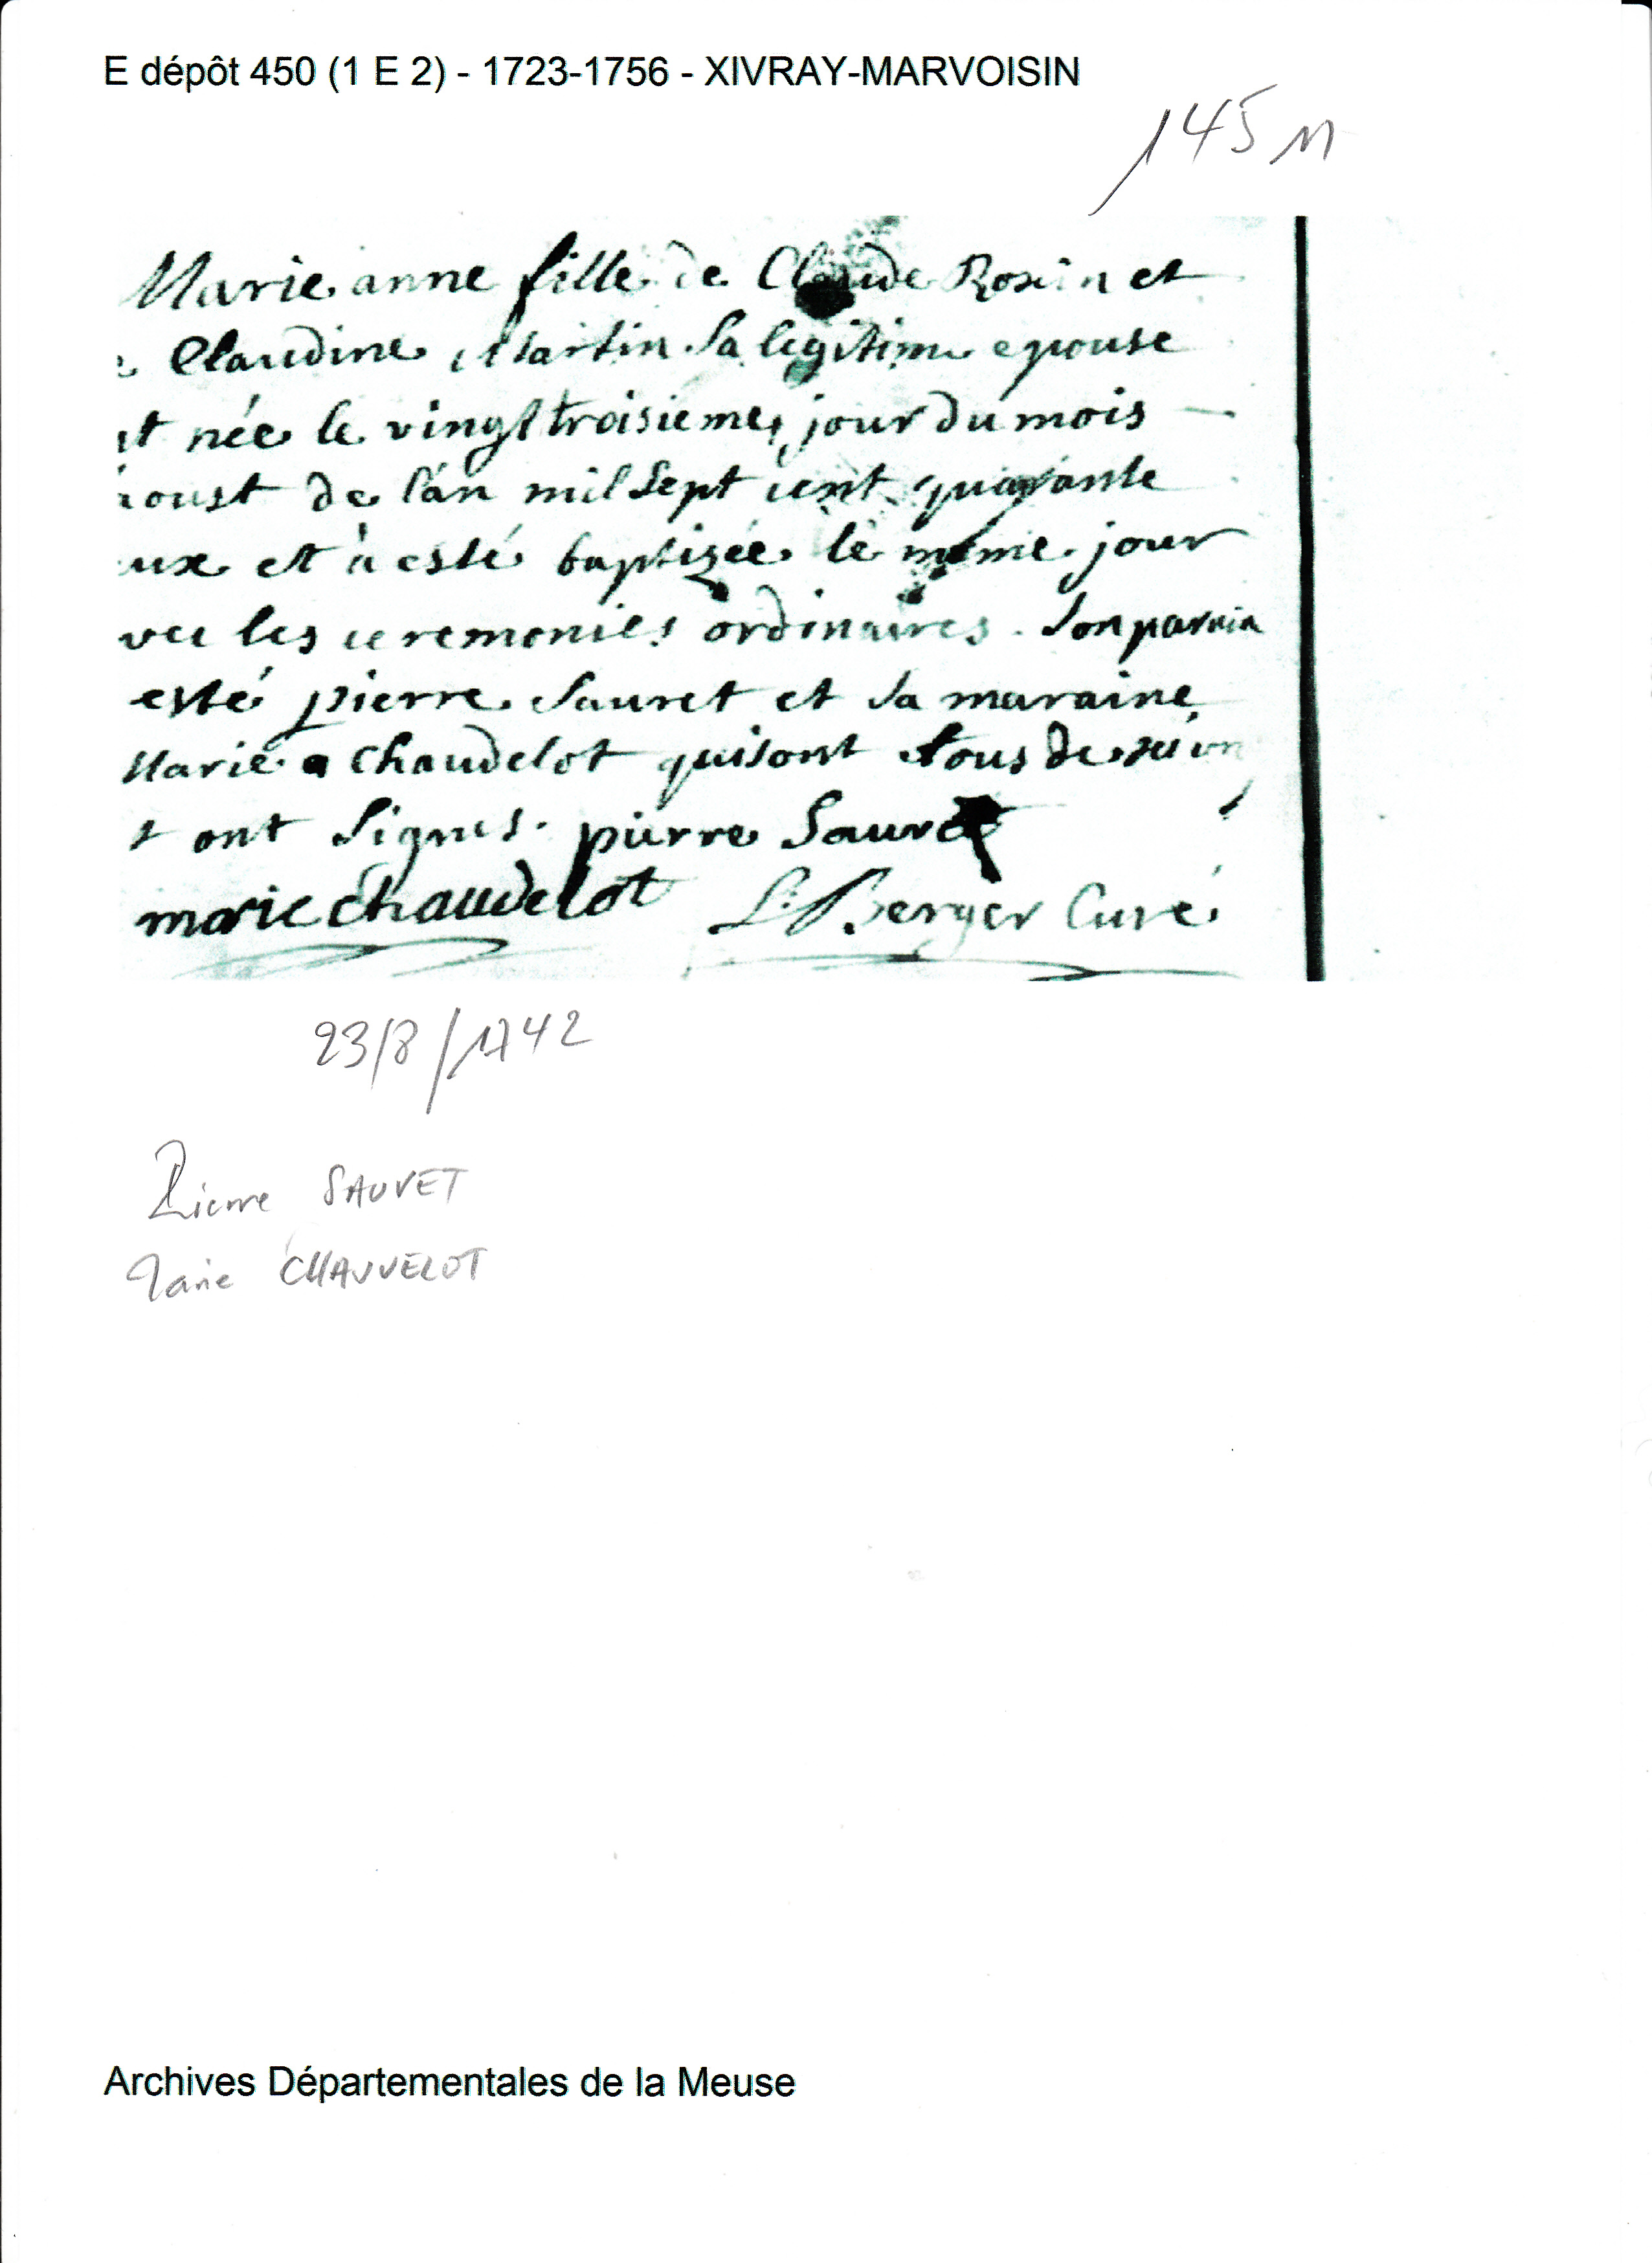 E dépôt 450 (1 E 2) - 1723-1756 - XIVRAY-MARVOISIN
145 M
Marie anne fille de Claude Rosin et
e Claudine Martin Sa legitime epouse
st née le vingt troisieme jour du mois —
aoust de l'an mil Sept cent quarante
ux et à esté baptizée le même jour
vec les ceremonies ordinaires. Son parain
esté pierre Sauvet et Sa maraine
Marie Chaudelot qui sont tous de
t ont Signés. pierre Sauvet
marie chaudelot L. Berger Curé
23/8/1742
Pierre SAUVET
Marie CHAUVELOT
Archives Départementales de la Meuse